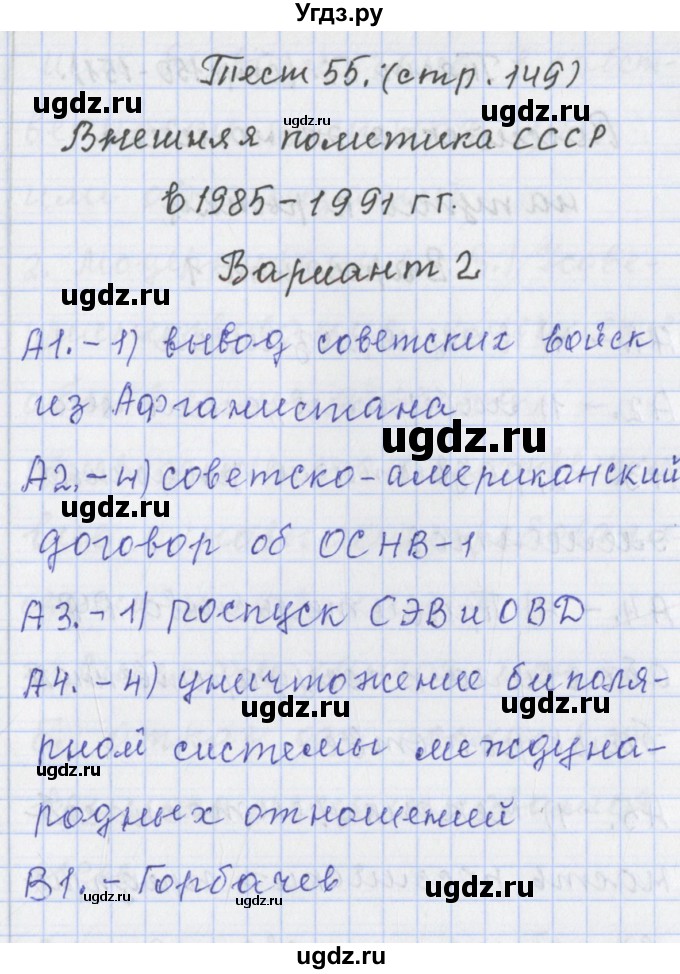 Угдз.ру
Тест 55. (стр. 149)
ugdz.ru
ugdz.ru
Внешняя политика СССР
ugdz.ru
в 1985-1991 гг.
Вариант 2
ugdz.ru
ugdz.ru
А1.-1) вывод советских войск
из Афганистана
ugdz.ru
А2.-4) советско-американский
ugdz.ru
ugdz.ru
договор об ОСНВ-1
А3.-1) роспуск СЭВ и ОВД
А4.-4) уничтожение биполя-
ugdz.ru
ugdz.ru
рной системы междуна-
ugdz.ru
родных отношений
В1.-Горбачев
ugdz.ru
ugdz.ru
ugdz.ru
ugdz.ru